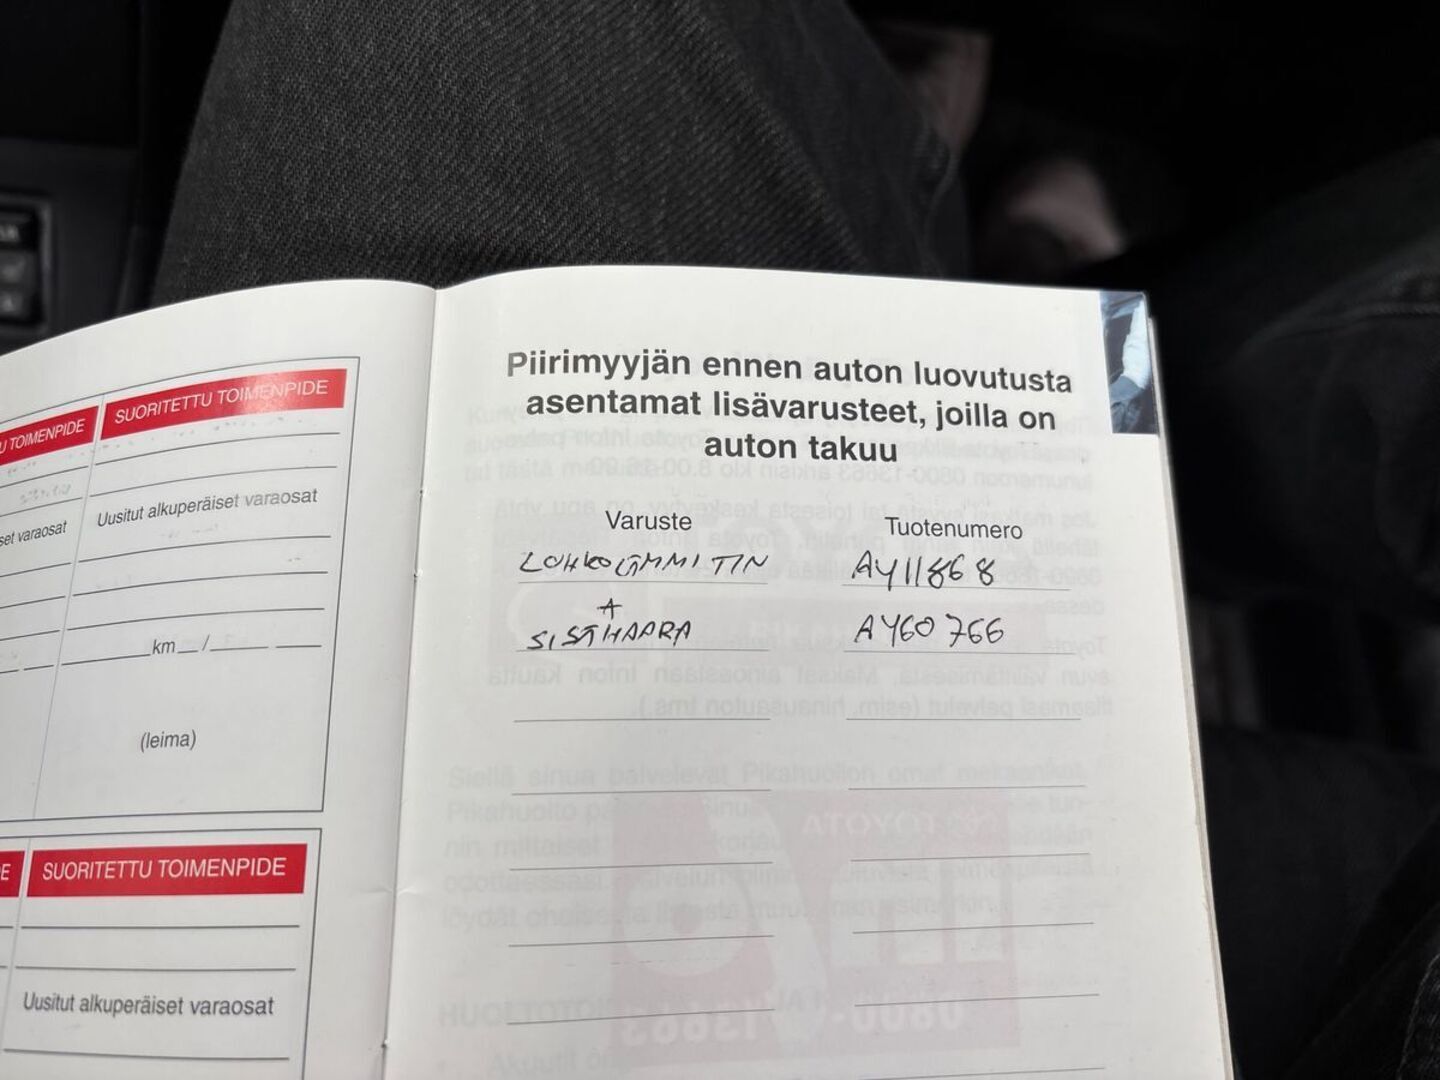 U TOIMENPIDE
SUORITETTU TOIMENPIDE
set varaosat
Uusitut alkuperäiset varaosat
km __ /
(leima)
E
SUORITETTU TOIMENPIDE
Uusitut alkuperäiset varaosat
Piirimyyjän ennen auton luovutusta
asentamat lisävarusteet, joilla on
auton takuu
Varuste Tuotenumero
LOHKOLÄMMITIN AY11868
+
SISÄHAARA AY60766